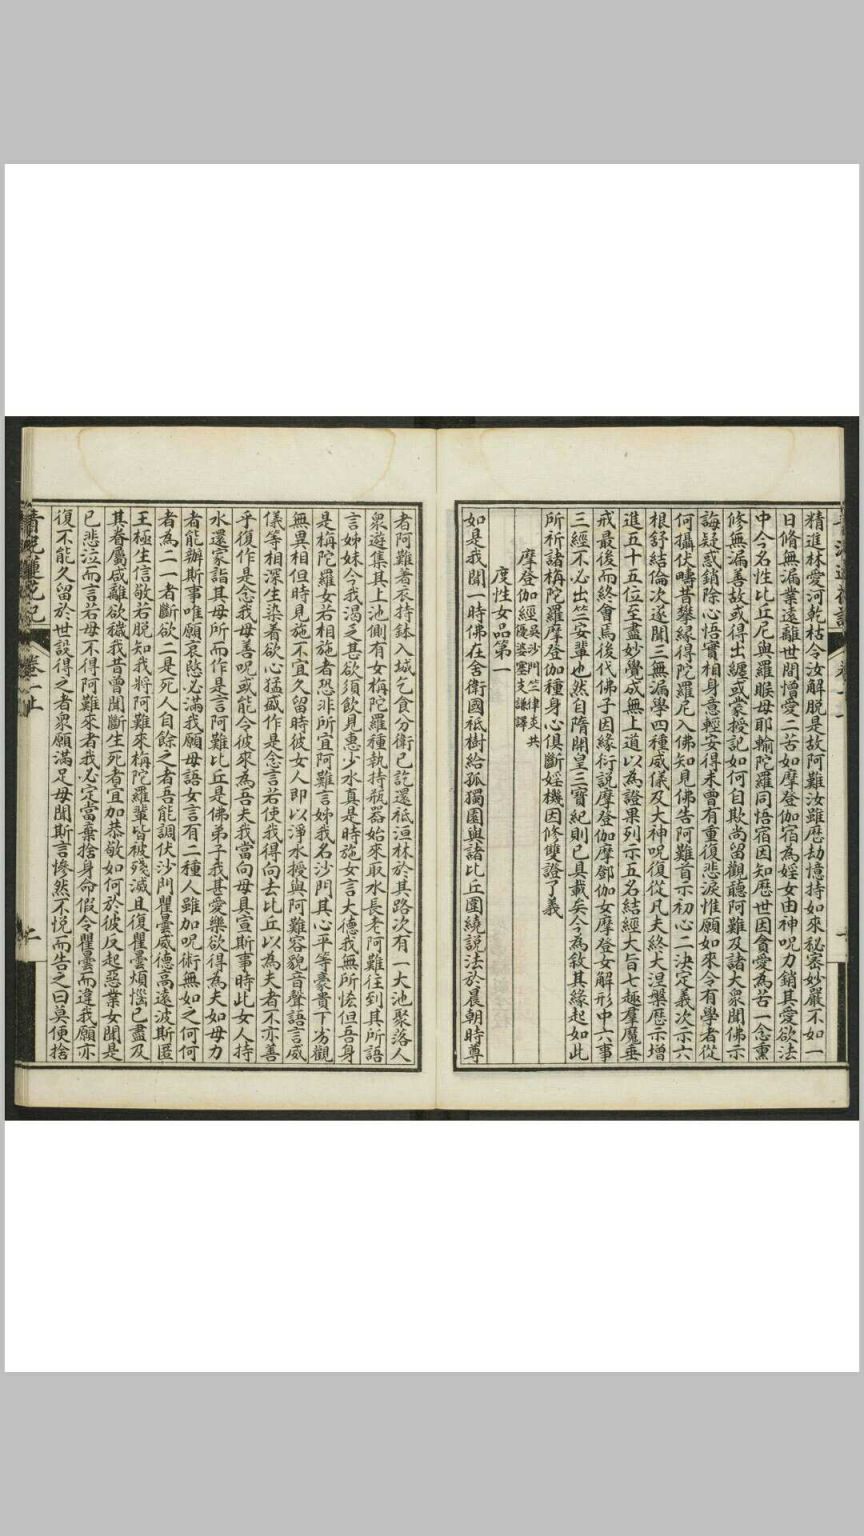 精進林愛河乾枯令汝解脫是故阿難汝雖歷劫憶持如來秘密妙嚴不如一
日脩無漏業遠離世間憎愛二苦如摩登伽宿為婬女由神呪力銷其愛欲法
中今名性比丘尼與羅睺母耶輸陀羅同悟宿因知歷世因貪愛為苦一念熏
修無漏善故或得出纏或蒙授記如何自欺尚留觀聽阿難及諸大衆聞佛示
誨疑惑銷除心悟實相身意輕安得未曾有重復悲淚惟願如來令有學者從
何攝伏疇昔攀緣得陀羅尼入佛知見佛告阿難首示初心二決定義次示六
根舒結倫次遂開三無漏學四種威儀及大神呪復從凡夫終大涅槃歷示增
進五十五位至盡妙覺成無上道以為證果列示五名結經大旨七趣羣魔垂
戒最後而終會焉後代佛子因緣衍說摩登伽摩鄧伽女摩登女解形中六事
三經不必出竺安輩也然自隋開皇三寶紀則已具載矣今為敘其緣起如此
所祈諸栴陀羅摩登伽種身心俱斷婬機因修雙證了義
摩登伽經吳沙門竺律炎共
優婆塞支謙譯
度性女品第一
如是我聞一時佛在舍衛國祗樹給孤獨園與諸比丘圍繞說法於晨朝時尊
者阿難著衣持鉢入城乞食分衛已訖還祗洹林於其路次有一大池聚落人
衆遊集其上池側有女栴陀羅種執持瓶器始來取水長老阿難往到其所語
言姊妹今我渴乏甚欲須飲見惠少水真是時施女言大德我無所悋但吾身
是栴陀羅女若相施者恐非所宜阿難言姊我名沙門其心平等豪貴下劣觀
無異相但時見施不宜久留時彼女人即以淨水授與阿難容貌音聲語言威
儀等相深生染着欲心猛盛作是念言若使我得向去比丘以為夫者不亦善
乎復作是念我母善呪或能令彼來為吾夫我當向母具宣斯事時此女人持
水還家詣其母所而作是言阿難比丘是佛弟子我甚愛樂欲得為夫如母力
者能辦斯事唯願哀愍必滿我願母語女言有二種人雖加呪術無如之何何
者為二一者斷欲二是死人自餘之者吾能調伏沙門瞿曇威德高遠波斯匿
王極生信敬若脫知我將阿難來栴陀羅輩皆被殘滅且復瞿曇煩惱已盡及
其眷屬咸離欲穢我昔曾聞斷生死者宜加恭敬如何於彼反起惡業女聞是
已悲泣而言若母不得阿難來者我必定當棄捨身命假令瞿曇而違我願亦
復不能久留於世設得之者衆願滿足母聞斯言慘然不悅而告之曰莫便捨